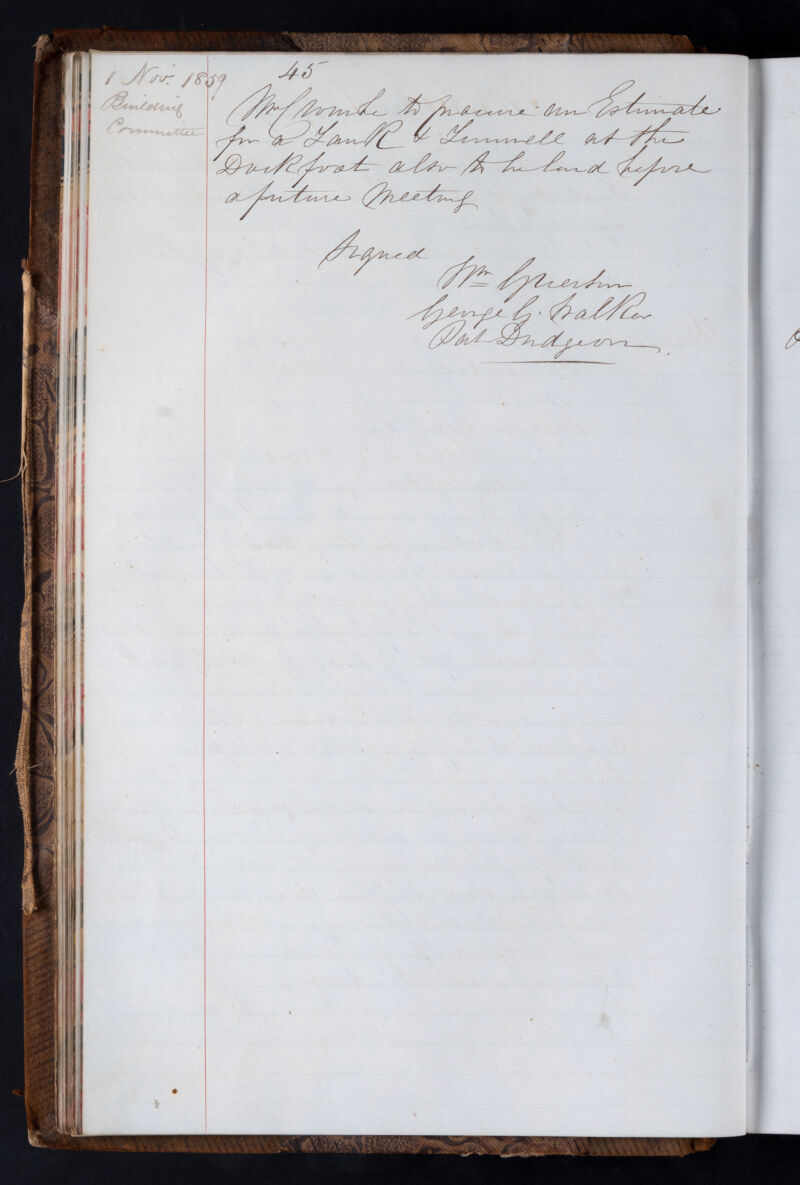 45
1 Nov. 1859
Building
Committee
to procure an Estimate
for a Tank & Tunnell at the
Dockfoot also to be laid before
a future Meeting
Signed
Wm Grierson
George G. Walker
Pat Dudgeon